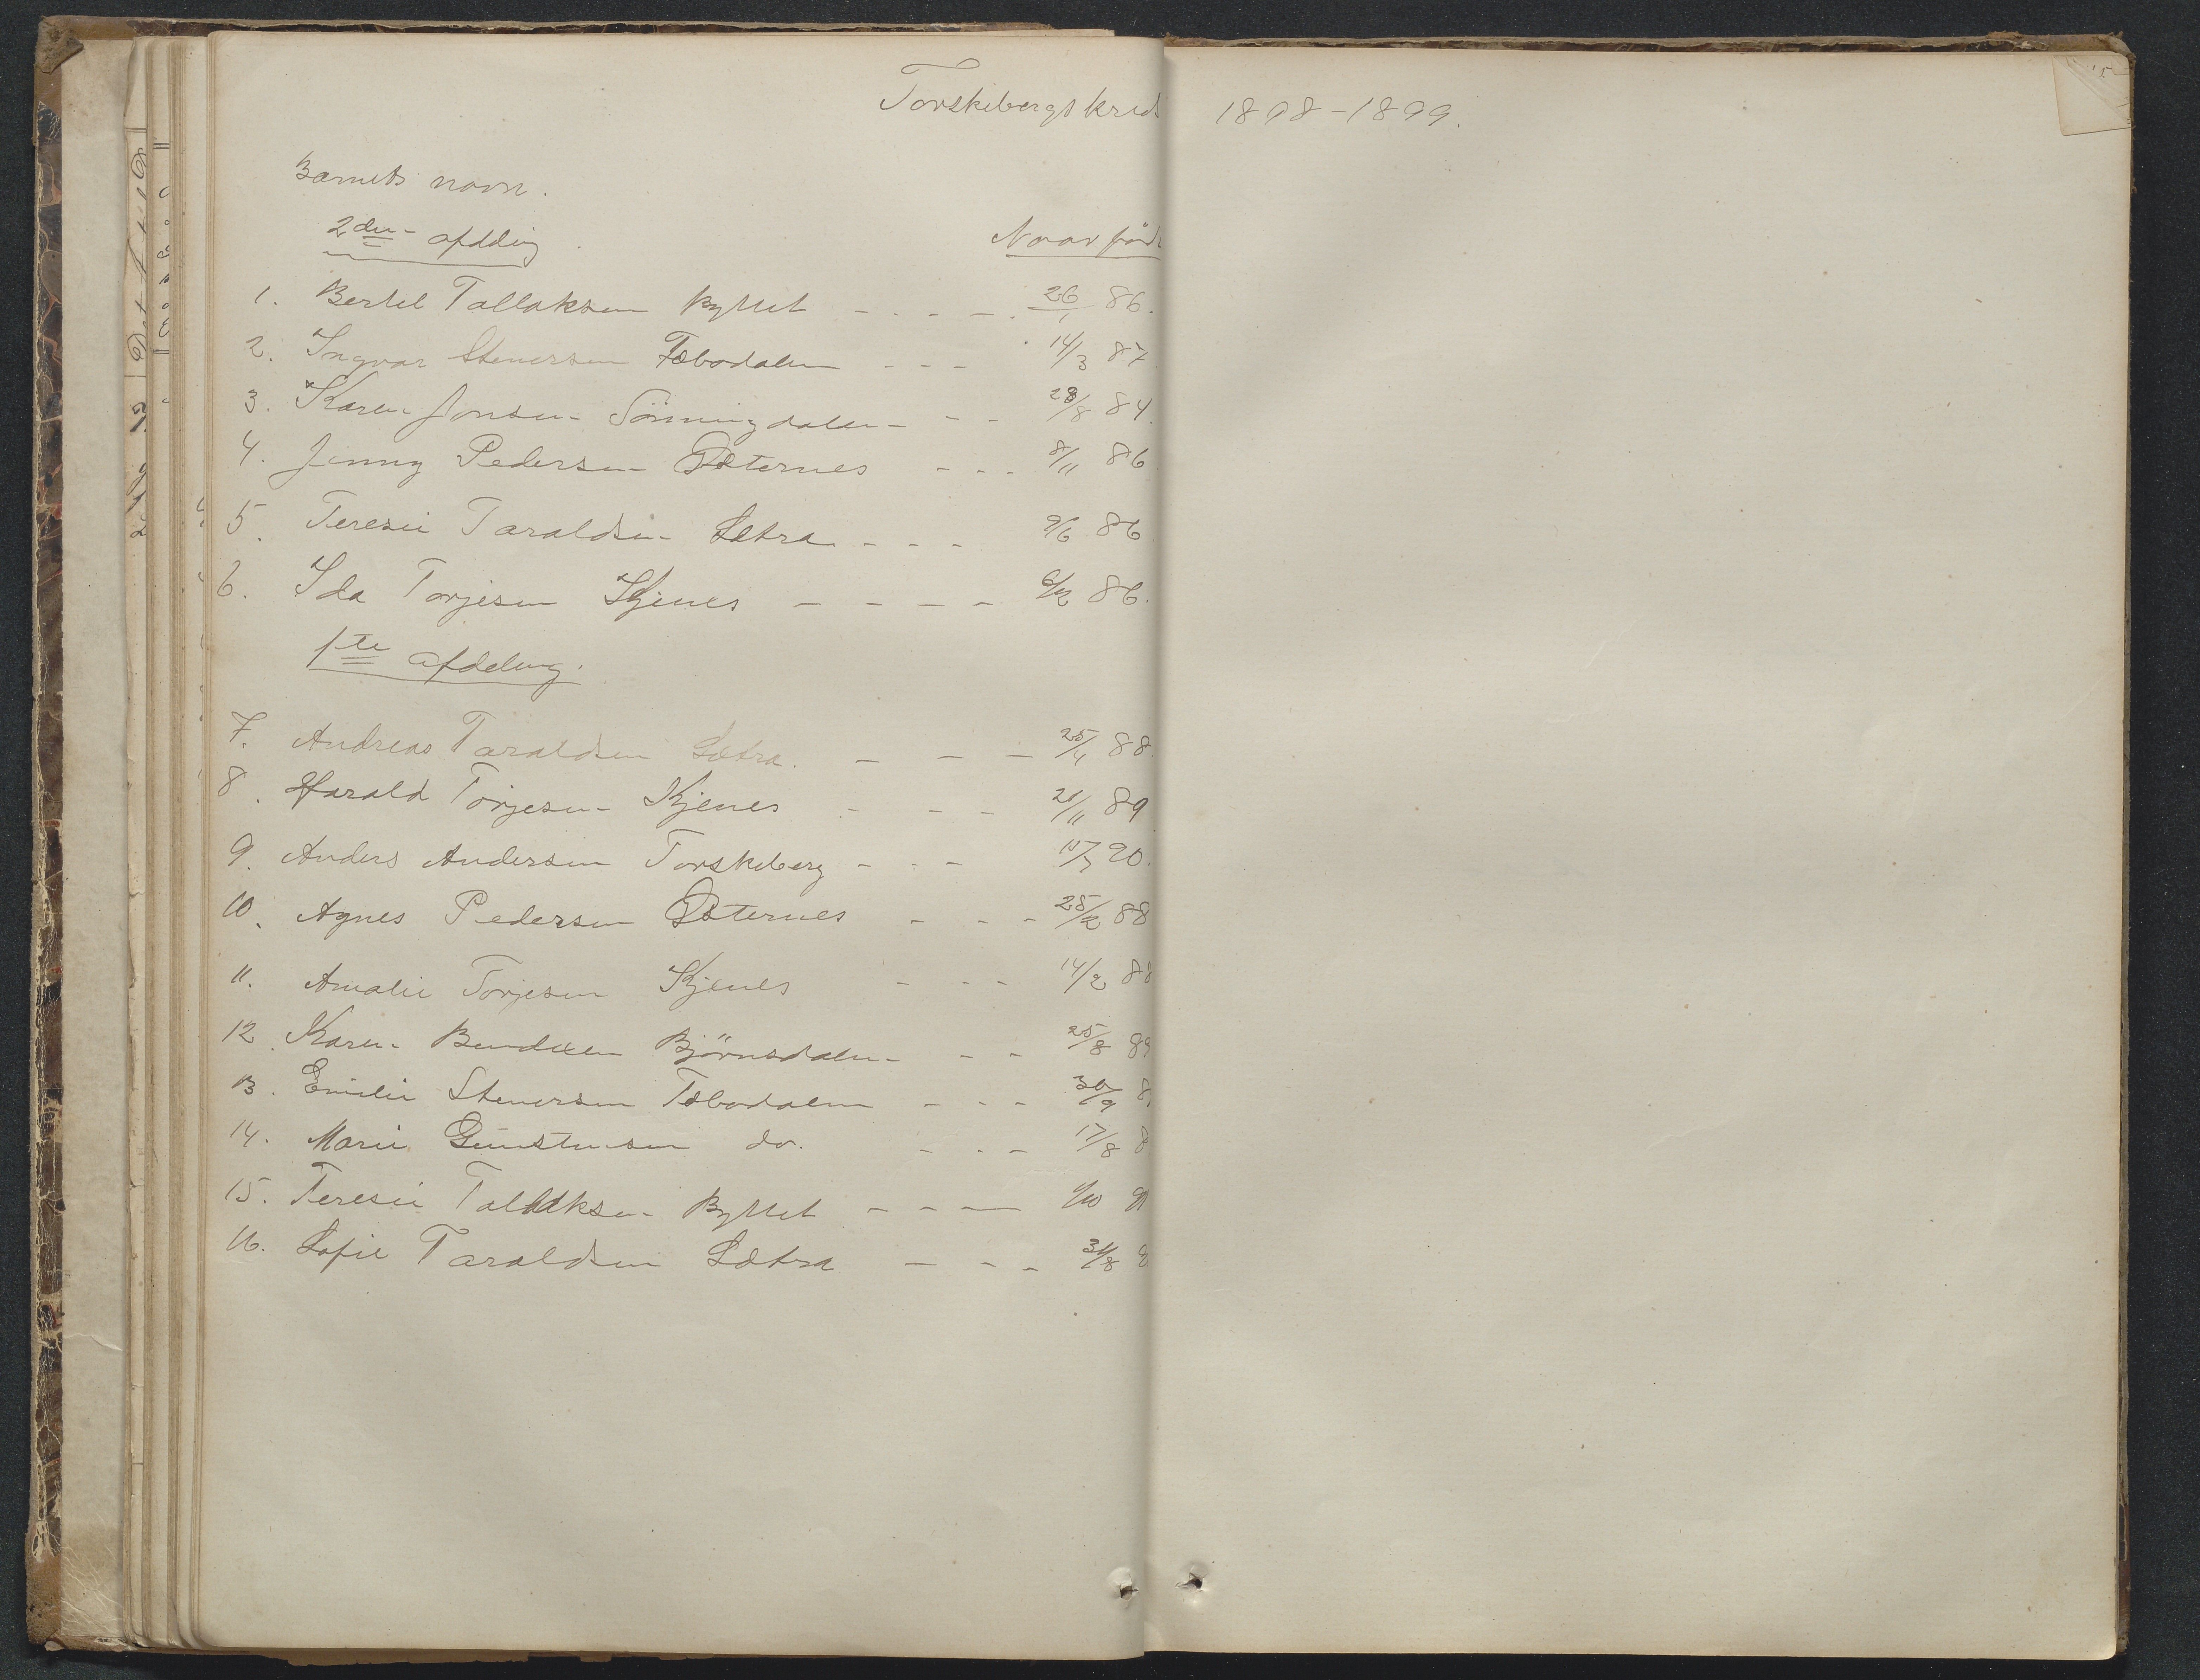 Torskebergs kreds 1898-1899.
Barnets navn.
2den afdeling Naar født
1. Bertel Tallaksen Byttet - - - - 26/1 86.
2. Ingvar Stenersen Tæbodalen - - - 14/3 87
3. Karen Jonsen Sönningdalen - - 28/8 84.
4. Jenny Pedersen Østernes - - - 8/11 86
5. Teresie Taraldsen Sætra - - - 9/6 86
6. Ida Torjesen Kjenes - - - - 6/12 86.
1ste afdeling.
7. Andreas Taraldsen Sætra. - - - 25/4 88
8. Harald Torjesen Kjenes - - - 21/11 89
9. Anders Andersen Torskeberg - - - 15/7 90.
10. Agnes Pedersen Østernes - - - 25/12 88
11. Amalie Torjesen Kjenes - - - 14/2 88
12. Karen Bendixen Björnsdalen - - 25/8 89
13. Emilie Stenersen Tæbodalen - - - 30/9 8
14. Marie Gunstensen do. - - - 17/8 8
15. Teresie Tallaksen Byttet - - - 9
16. Sofie Taraldsen Sætra - - - 31/8 8